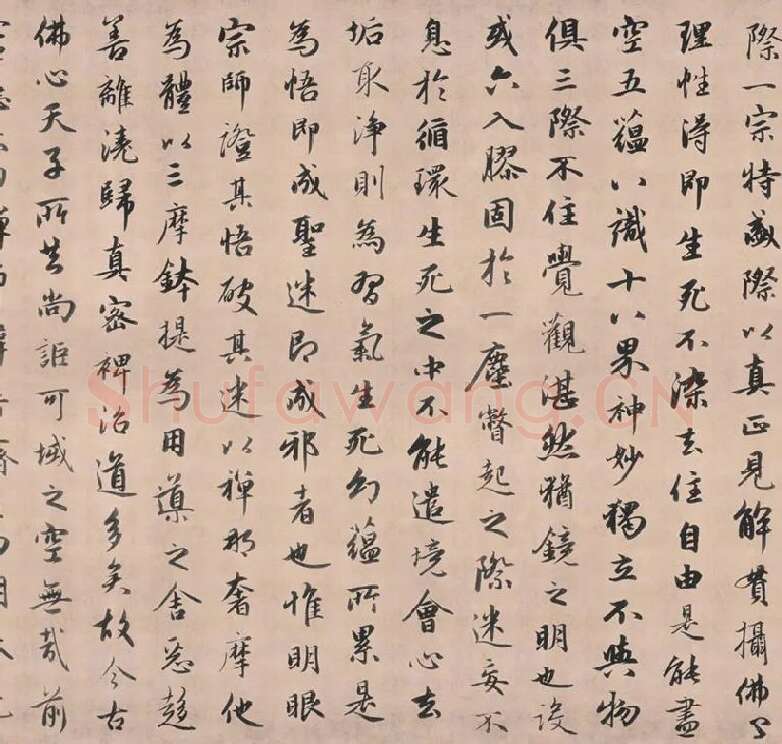 際一宗特盛際以真正見解貫攝佛了
理性得即生死不染去住自由是能盡
空五蘊八識十八界神妙獨立不與物
俱三際不住覺觀湛然猶鏡之明也設
或六入膠固於一塵瞥起之際迷妄不
息於循環生死之中不能遣境會心去
垢取淨則為習氣生死幻蘊所累是
為悟即成聖迷即成邪者也惟明眼
宗師證其悟破其迷以禪那奢摩他
為體以三摩鉢提為用導之舍惡趨
善離澆歸真密裨治道多矣故今古
佛心天子所共尚詎可域之空無哉前
Shufawang.CN